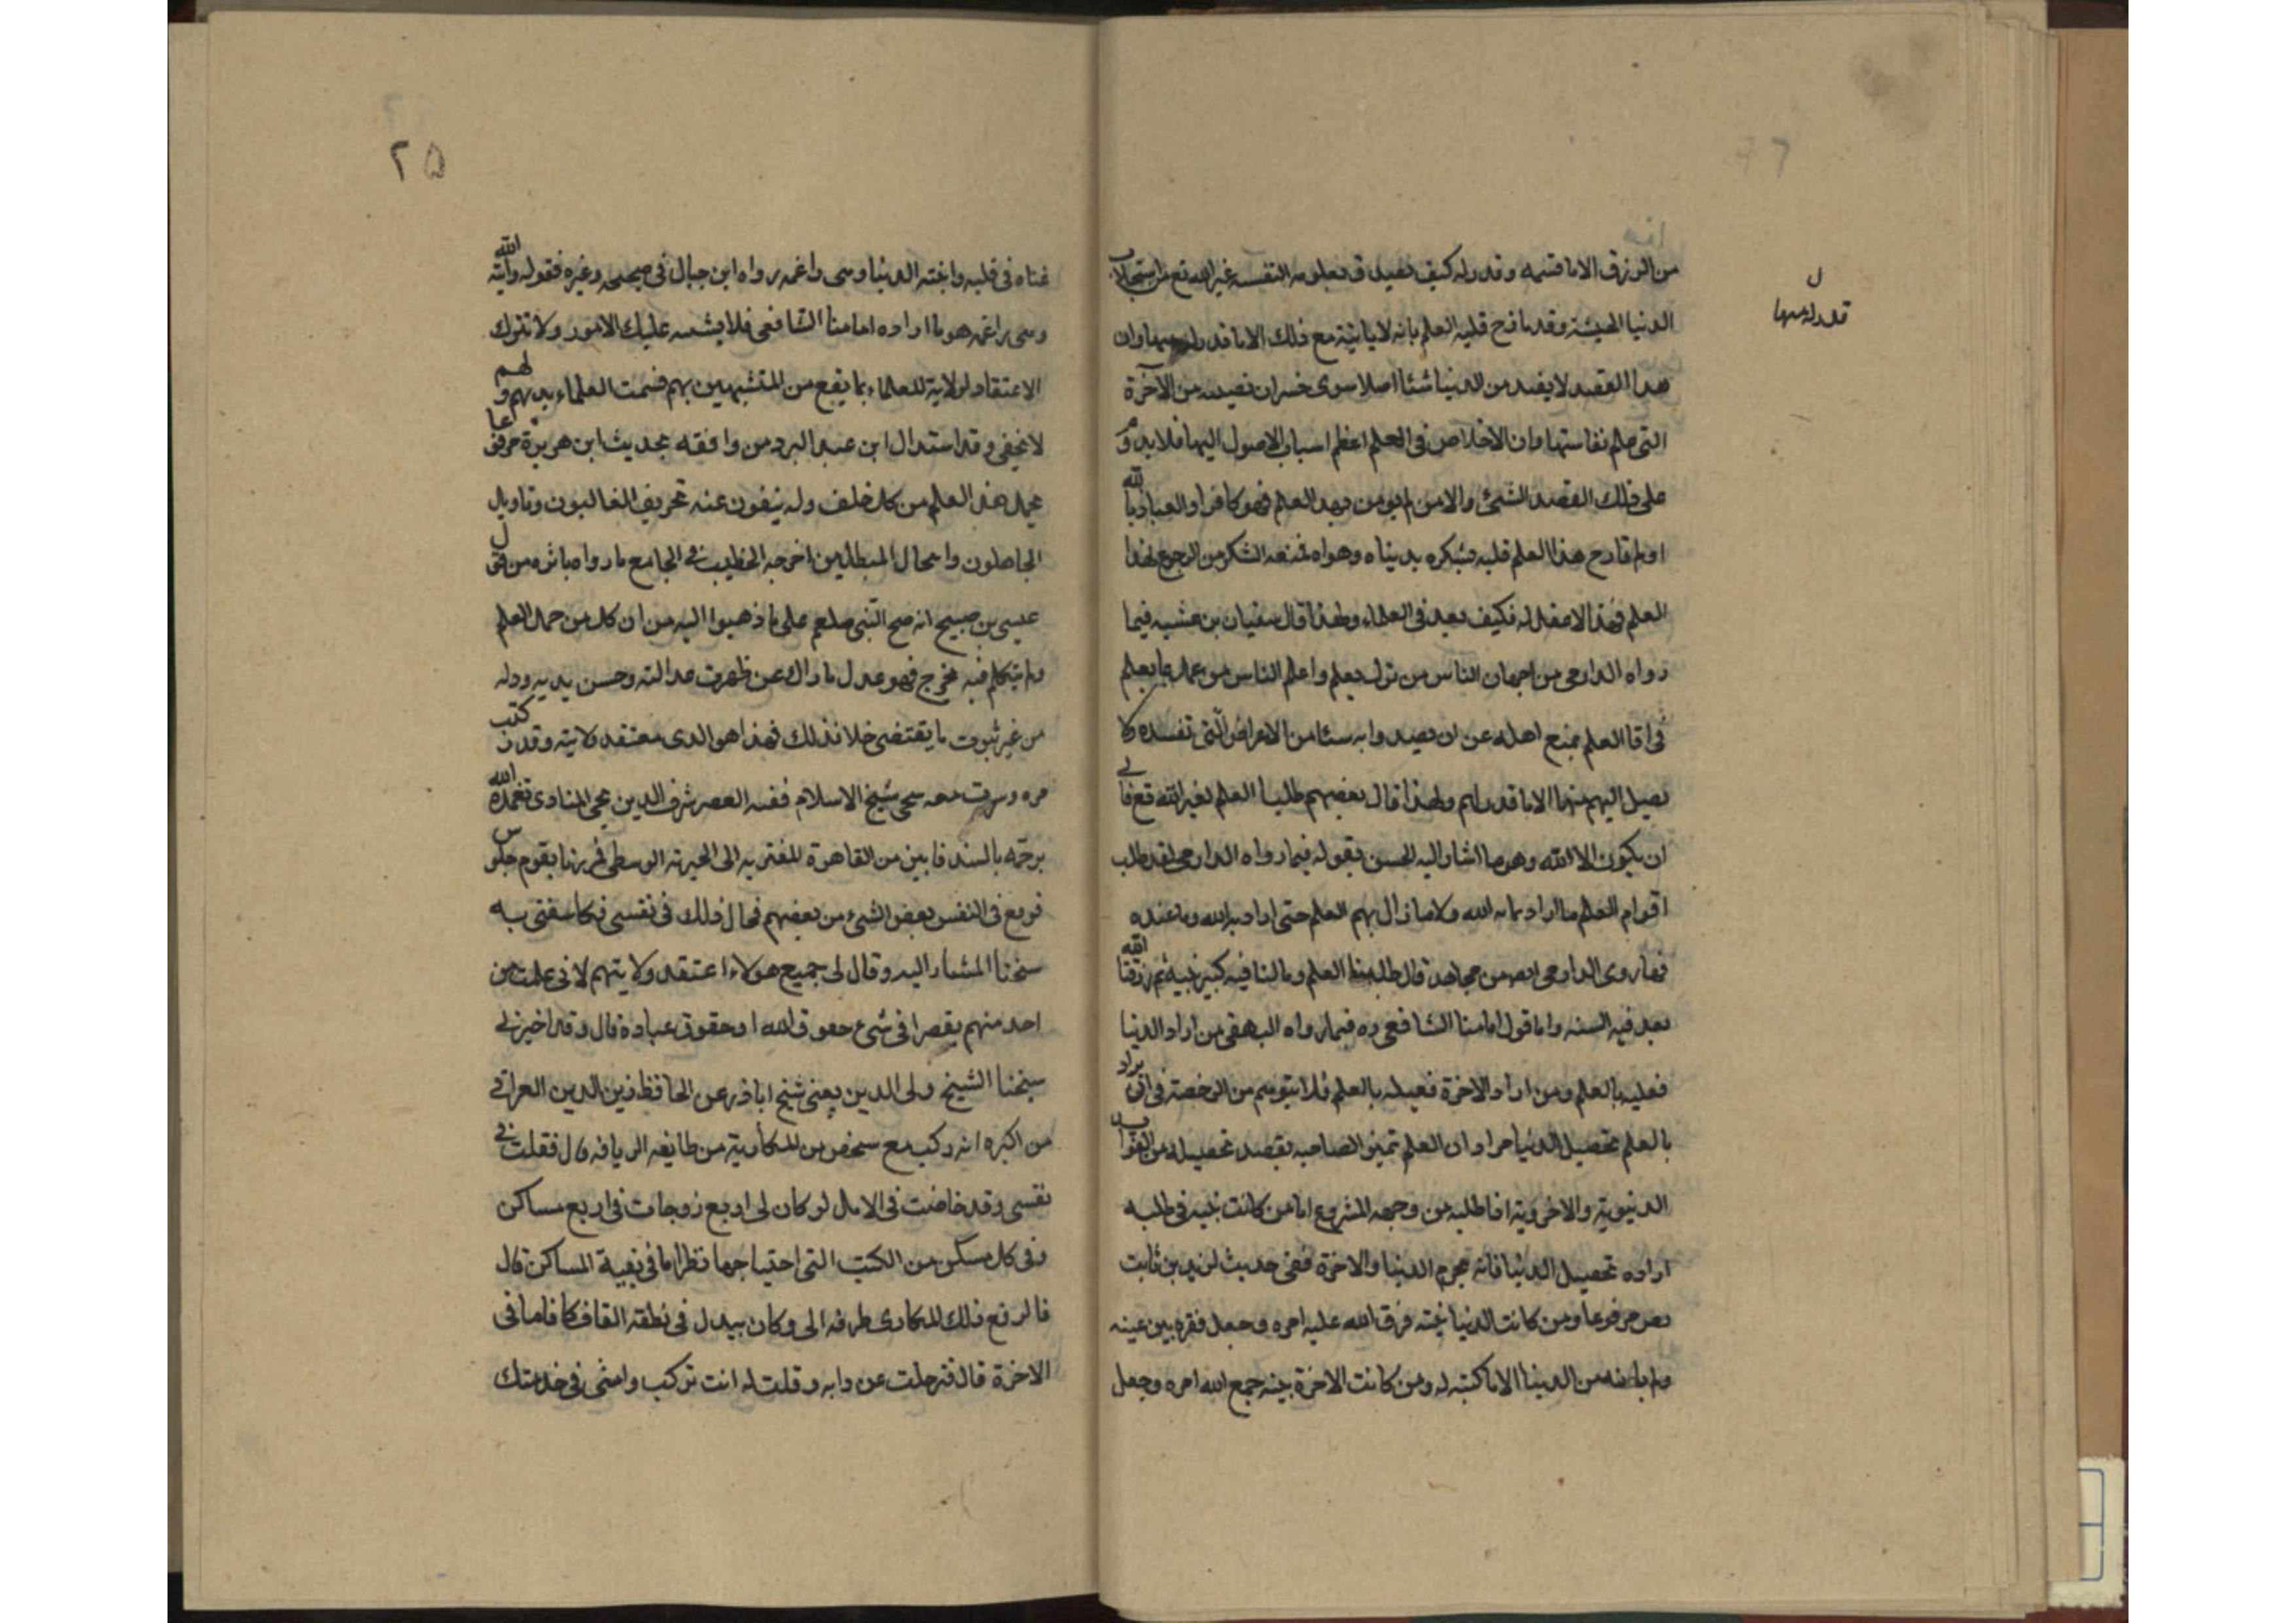 من الرزق الا ما قسمه وقدر له كيف يصيد ق بعلومه النفسه غير الله تع من استجلاب
الدنيا الخبيثة وقد ما فح قلبه العلم بانه لا ياتيه مع ذلك الا ما قدر له منها وان
قدر له منها
هذا القصد لا يفيد من الدنيا شئا اصلا سوى خسران نصيبه من الآخرة
التى علم نفاستها وان الاخلاص فى العلم اعظم اسباب الاصول اليها فلا بد و
على ذلك القصد الشئ والا من لم يومن بهد العلم فهو كافر او العياذ بالله
او لم قادح هذا العلم قلبه فسكره بدنياه وهواه لمنعه الشكر من الرجوع لهذا
العلم فهذا لا عقل له فكيف يعد فى العلماء ولهذا قال سفيان بن عتيبه فيما
رواه الدارمى من اجهان الناس من ترك يعلم واعلم الناس من عمل بما يعلم
فى اقا العلم يمنع اهله عن ان يصيدوا به سئا من الاعراض التى تفسده ولا
يصيل اليهم منها الا ما قدر لهم ولهذا قال بعضهم طلبنا العلم لغير الله تع فابى
ان يكون الا الله وهو ما اشار اليه الحسن بقوله فيما رواه الدارمى لقد طلب
اقوام العلم ما ارادوا به الله ولا ما زال بهم العلم حتى ارادوا به الله وما عنده
فما روى الدارمى ايضا من مجاهد قال طلبنا هذا العلم وما لنا فيه كبير نيه ثم رزقنا الله
بعد فيه السنه واما قول امامنا الشافعى ره فيما رواه البيهقى من اراد الدنيا
فعليه بالعلم ومن اراد الاخرة فعيله بالعلم فلا يتوسم من الرخصة فى ان يراد
بالعلم تحصيل الدنيا مراد ان العلم تميز لصاحبه بقصد تحصيله من الثواب
الدنيوية والاخروية اذا طلبه من وجهه المشروع اما من كانت نيته فى طلبه
اراده تحصيل الدنيا فانه محرم الدنيا والاخرة ففى حديث لزيد بن ثابت
رص مرفوعا ومن كانت الدنيا نيته فرق الله عليه امره وجعل فقره بين عينه
ولم ياته من الدنيا الا ما كتبه له ومن كانت الاخرة نيته جمع الله امره وجعل
٢٥
غناه فى قلبه واتته الدنيا وهى راغمه رواه ابن حبان فى صحيحه وغيره فقوله واتته الله
وهى راغمه هو ما اراده امامنا الشافعى فلا يشتبه عليك الامور ولا تترك
الاعتقاد لولاية للعلماء بما يقع من المتشبهين بهم فسمت العلماء بديهم و لهم
لا يخفى وقد استدال ابن عبد البر ومن وافقه بحديث ابن هريرة مرفوعا
يحمل هذا العلم من كل خلف وله ينفون عنه تحريف الغالبون وتاويل
الجاهلون وانتحال المبطلين اخرجه الخطيب فى الجامع ما رواه باثره من قول
عيسى بن صبيح انه صح النبى صلعم على ما ذهبوا اليه من ان كل من حمل العلم
ولم يتكلم فيه مخرج فهو عدل ما راك عن ظهرت عدالته وحسن يديه ودله
من غير ثبوت ما يقتضى خلاف ذلك فهذا هو الدى معتقد لايته وقد كتب
مره وسرت معه سحى شيخ الاسلام فقيه العصر شرف الدين يحيى المناوى تغمده الله
برحمه بالسند فابين من القاهرة المغتربه الى الجيزه الوسطى فمررنا بقوم جلوس
فوقع فى النفس بعض الشئ من بعضهم فحال ذلك فى نفسى فكاسفنى به
سخنا المشار اليه وقال لى جميع هولاء اعتقد ولا يتهم لانى علمت من
احد منهم يقصر فى شئ حقوق الله او حقوق عبادة قال وقد اخبرنى
سيخنا الشيخ ولى الدين يعنى شيخ اباذر عن الحافظ زين الدين العراقى
من اكبره انه ركب مع سخص من المكاريه من طايفه الريافه قال فقلت فى
نفسى وقد خاضت فى الامال لو كان لى اربع زوجات فى اربع مساكن
وفى كل مسكن من الكتب التى احتياجها نظرا ما فى بقية المساكن قال
فالرفع ذلك للمكارى طرفه الى وكان يبدل فى نطقه القاف كافا ما فى
الاخرة قال فترجلت عن دابه وقلت له انت تركب وامشى فى خدمتك